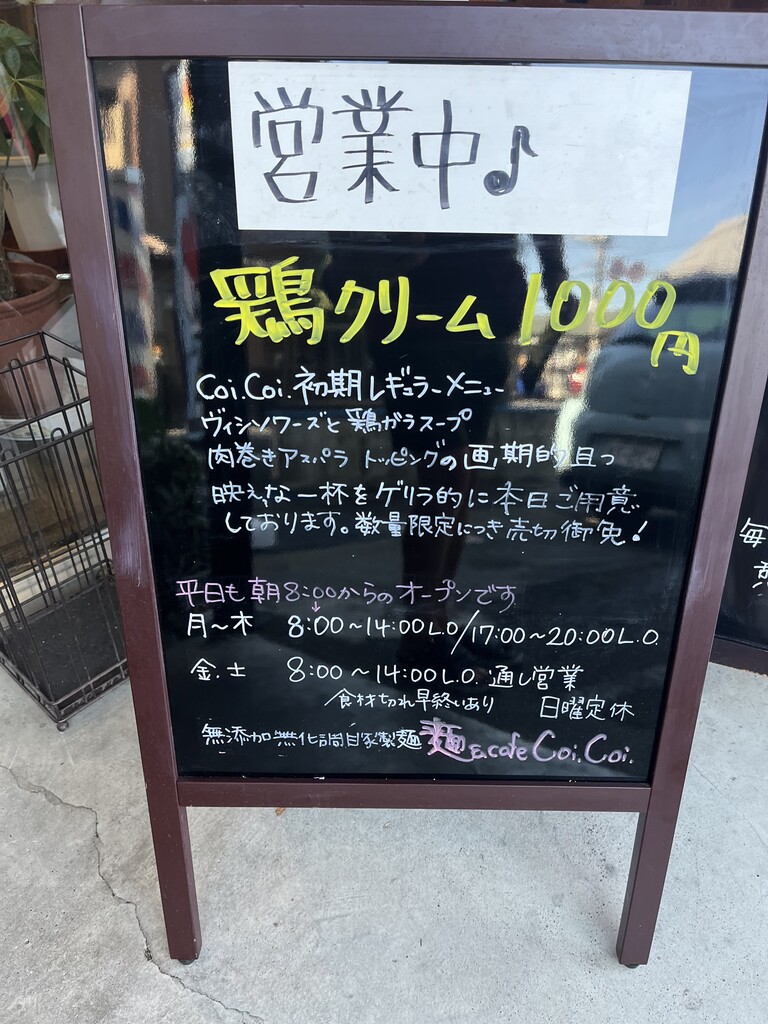 営業中♪
鶏クリーム 1000円
Coi.Coi.初期レギュラーメニュー
ヴィシソワーズと鶏ガラスープ
肉巻きアスパラ トッピングの画期的且つ
映えな一杯をゲリラ的に本日ご用意
しております。数量限定につき売切御免!
平日も朝8:00からのオープンです
月〜木 8:00〜14:00L.O/17:00〜20:00L.O.
金.土 8:00〜14:00L.O. 通し営業
食材切れ早終いあり 日曜定休
無添加無化調自家製麺 麺&cafe Coi.Coi.
毎